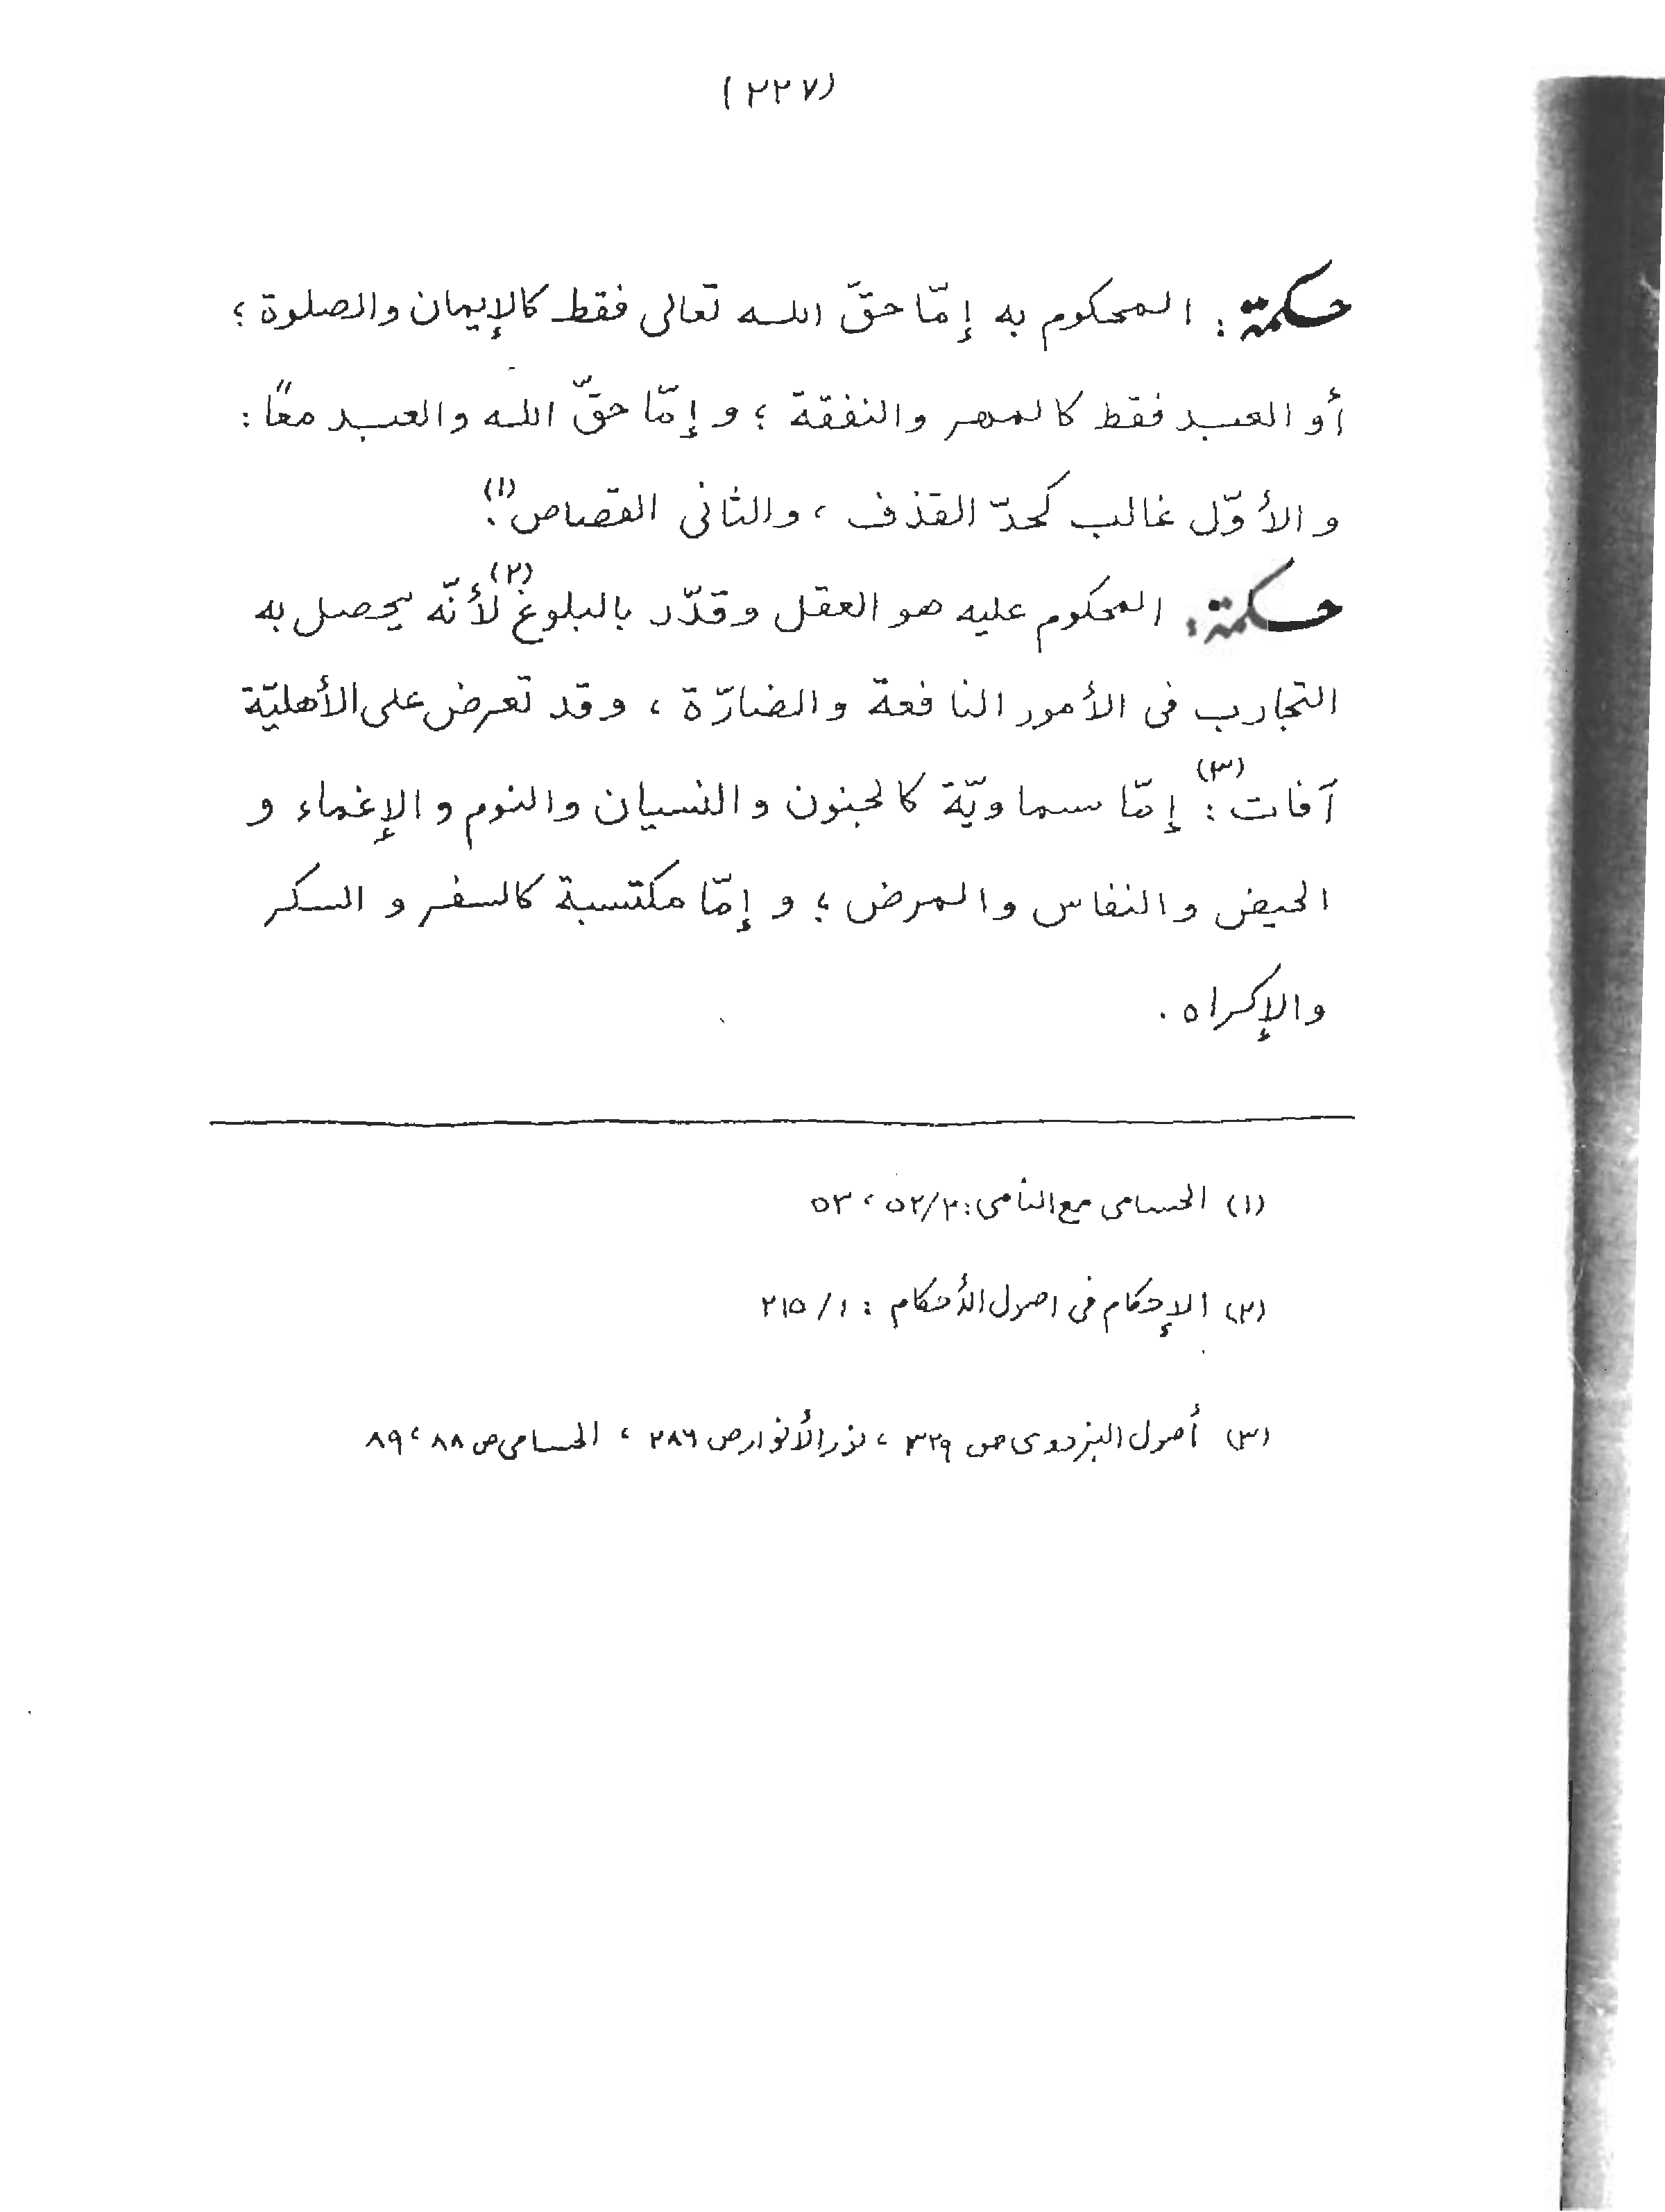 (٢٢٧)
حكمة : المحكوم به إمّا حقّ الله تعالى فقط كالإيمان والصلوة ؛
أو العبد فقط كالمهر والنفقة ؛ و إمّا حقّ الله والعبد معًا :
و الأوّل غالب كحدّ القذف ، والثانى القصاص (١).
حكمة : المحكوم عليه هو العقل وقدّر بالبلوغ (٢) لأنّه يحصل به
التجارب فى الأمور النافعة والضارّة ، وقد تعرض على الأهليّة
آفات (٣) : إمّا سماويّة كالجنون والنسيان والنوم والإغماء و
الحيض والنفاس والمرض ؛ و إمّا مكتسبة كالسفر و السكر
والإكراه .
(١) الحسامى مع النامى : ٢/ ٥٢ ، ٥٣
(٢) الإحكام فى اصول الأحكام : ١/ ٢١٥
(٣) أصول البزدوى ص ٣٢٩ ، نور الأنوار ص ٢٨٦ ، الحسامى ص ٨٨ ، ٨٩